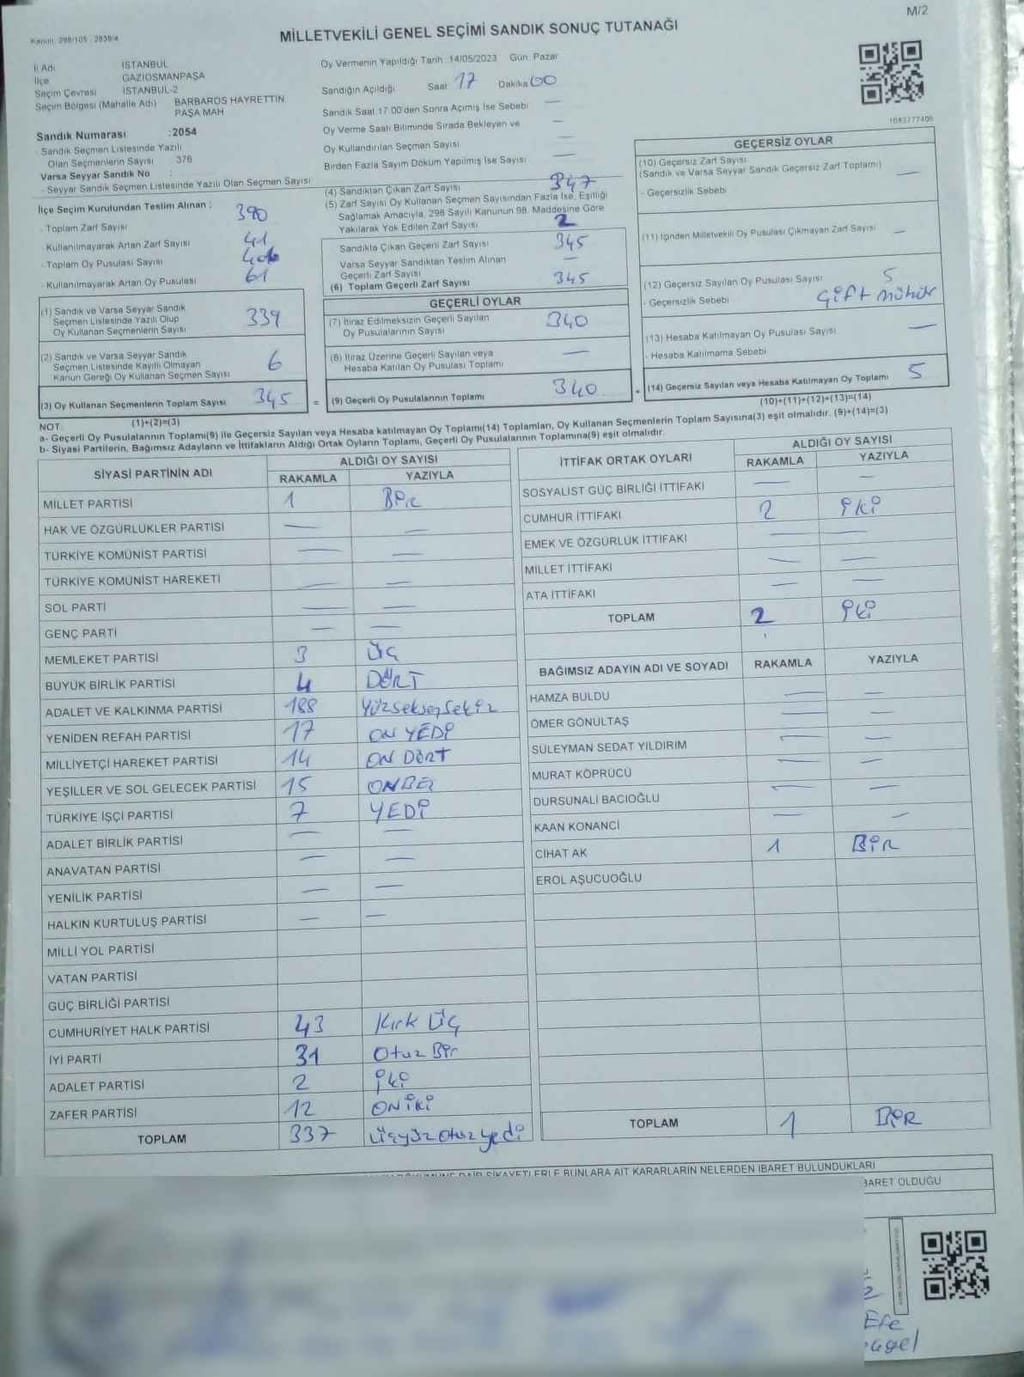 M/2
MİLLETVEKİLİ GENEL SEÇİMİ SANDIK SONUÇ TUTANAĞI
İl Adı İSTANBUL
İlçe GAZİOSMANPAŞA
Seçim Çevresi İSTANBUL-2
Seçim Bölgesi (Mahalle Adı) BARBAROS HAYRETTİN PAŞA MAH
Sandık Numarası :2054
- Sandık Seçmen Listesinde Yazılı
Olan Seçmenlerin Sayısı 376
Varsa Seyyar Sandık No :
- Seyyar Sandık Seçmen Listesinde Yazılı Olan Seçmen Sayısı
İlçe Seçim Kurulundan Teslim Alınan :
- Toplam Zarf Sayısı 390
- Kullanılmayarak Artan Zarf Sayısı 41
- Toplam Oy Pusulası Sayısı
- Kullanılmayarak Artan Oy Pusulası 61
(1) Sandık ve Varsa Seyyar Sandık
Seçmen Listesinde Yazılı Olup
Oy Kullanan Seçmenlerin Sayısı 339
(2) Sandık ve Varsa Seyyar Sandık
Seçmen Listesinde Kayıtlı Olmayan
Kanun Gereği Oy Kullanan Seçmen Sayısı 6
(3) Oy Kullanan Seçmenlerin Toplam Sayısı 345
(1)+(2)=(3)
Oy Vermenin Yapıldığı Tarih :14/05/2023 Gün: Pazar
Sandığın Açıldığı Saat 17 Dakika 00
Sandık Saat 17:00'den Sonra Açılmış İse Sebebi —
Oy Verme Saati Bitiminde Sırada Bekleyen ve
Oy Kullandırılan Seçmen Sayısı —
Birden Fazla Sayım Döküm Yapılmış İse Sayısı —
(4) Sandıktan Çıkan Zarf Sayısı 347
(5) Zarf Sayısı Oy Kullanan Seçmen Sayısından Fazla İse, Eşitliği
Sağlamak Amacıyla, 298 Sayılı Kanunun 98. Maddesine Göre
Yakılarak Yok Edilen Zarf Sayısı 2
Sandıkta Çıkan Geçerli Zarf Sayısı 345
Varsa Seyyar Sandıktan Teslim Alınan
Geçerli Zarf Sayısı —
(6) Toplam Geçerli Zarf Sayısı 345
GEÇERLİ OYLAR
(7) İtiraz Edilmeksizin Geçerli Sayılan
Oy Pusulalarının Sayısı 340
(8) İtiraz Üzerine Geçerli Sayılan veya
Hesaba Katılan Oy Pusulası Toplamı —
(9) Geçerli Oy Pusulalarının Toplamı 340
GEÇERSİZ OYLAR
(10) Geçersiz Zarf Sayısı
(Sandık ve Varsa Seyyar Sandık Geçersiz Zarf Toplamı) —
- Geçersizlik Sebebi
(11) İçinden Milletvekili Oy Pusulası Çıkmayan Zarf Sayısı —
(12) Geçersiz Sayılan Oy Pusulası Sayısı 5
- Geçersizlik Sebebi çift mühür
(13) Hesaba Katılmayan Oy Pusulası Sayısı —
- Hesaba Katılmama Sebebi
(14) Geçersiz Sayılan veya Hesaba Katılmayan Oy Toplamı 5
(10)+(11)+(12)+(13)=(14)
NOT
a- Geçerli Oy Pusulalarının Toplamı(9) ile Geçersiz Sayılan veya Hesaba katılmayan Oy Toplamı(14) Toplamları, Oy Kullanan Seçmenlerin Toplam Sayısına(3) eşit olmalıdır. (9)+(14)=(3)
b- Siyasi Partilerin, Bağımsız Adayların ve İttifakların Aldığı Ortak Oyların Toplamı, Geçerli Oy Pusulalarının Toplamına(9) eşit olmalıdır.
SİYASİ PARTİNİN ADI ALDIĞI OY SAYISI
RAKAMLA YAZIYLA
MİLLET PARTİSİ 1 BİR
HAK VE ÖZGÜRLÜKLER PARTİSİ — —
TÜRKİYE KOMÜNİST PARTİSİ — —
TÜRKİYE KOMÜNİST HAREKETİ — —
SOL PARTİ — —
GENÇ PARTİ — —
MEMLEKET PARTİSİ 3 ÜÇ
BÜYÜK BİRLİK PARTİSİ 4 DÖRT
ADALET VE KALKINMA PARTİSİ 188 Yüzseksensekiz
YENİDEN REFAH PARTİSİ 17 ON YEDİ
MİLLİYETÇİ HAREKET PARTİSİ 14 ON DÖRT
YEŞİLLER VE SOL GELECEK PARTİSİ 15 ONBEŞ
TÜRKİYE İŞÇİ PARTİSİ 7 YEDİ
ADALET BİRLİK PARTİSİ — —
ANAVATAN PARTİSİ — —
YENİLİK PARTİSİ — —
HALKIN KURTULUŞ PARTİSİ — —
MİLLİ YOL PARTİSİ
VATAN PARTİSİ
GÜÇ BİRLİĞİ PARTİSİ
CUMHURİYET HALK PARTİSİ 43 Kırk Üç
İYİ PARTİ 31 Otuz Bir
ADALET PARTİSİ 2 İki
ZAFER PARTİSİ 12 ONİKİ
TOPLAM 337 Üçyüz Otuz yedi
İTTİFAK ORTAK OYLARI ALDIĞI OY SAYISI
RAKAMLA YAZIYLA
SOSYALİST GÜÇ BİRLİĞİ İTTİFAKI — —
CUMHUR İTTİFAKI 2 İKİ
EMEK VE ÖZGÜRLÜK İTTİFAKI — —
MİLLET İTTİFAKI — —
ATA İTTİFAKI — —
TOPLAM 2 İKİ
BAĞIMSIZ ADAYIN ADI VE SOYADI RAKAMLA YAZIYLA
HAMZA BULDU — —
ÖMER GÖNÜLTAŞ — —
SÜLEYMAN SEDAT YILDIRIM — —
MURAT KÖPRÜCÜ — —
DURSUNALİ BACIOĞLU — —
KAAN KONANCİ — —
CİHAT AK 1 BİR
EROL AŞUCUOĞLU
TOPLAM 1 BİR
ŞİKAYETLERLE BUNLARA AİT KARARLARIN NELERDEN İBARET BULUNDUKLARI
BARET OLDUĞU
Efe